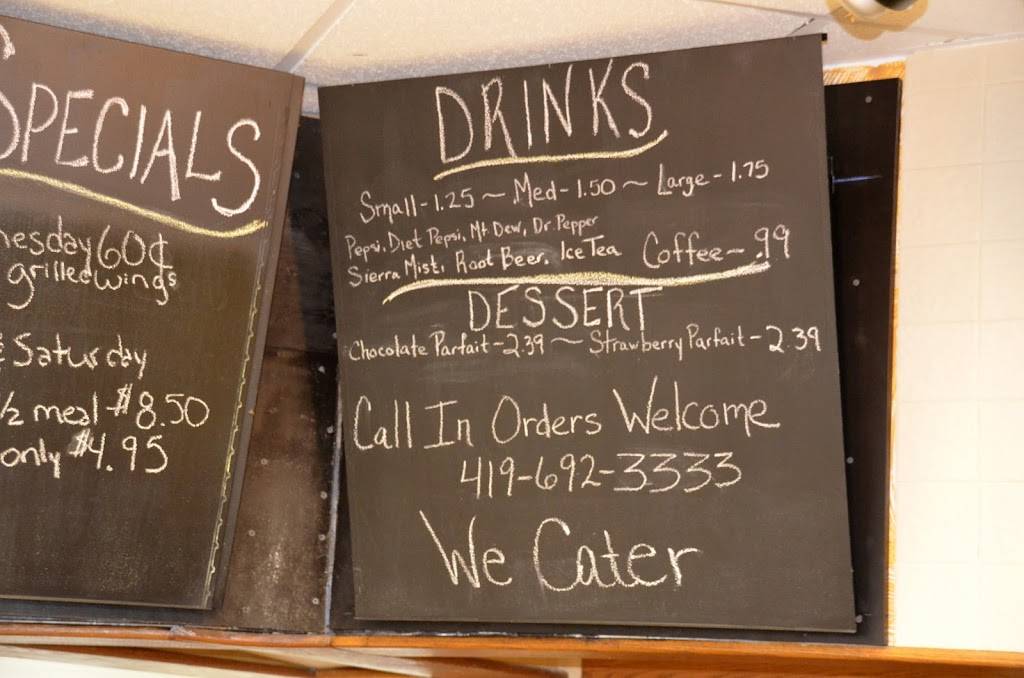 SPECIALS
60¢
grilled wings
Saturday
1/2 meal $8.50
only $4.95
DRINKS
Small-1.25 ~ Med-1.50 ~ Large-1.75
Pepsi, Diet Pepsi, Mt Dew, Dr. Pepper
Sierra Mist, Root Beer, Ice Tea Coffee-.99
DESSERT
Chocolate Parfait-2.39 ~ Strawberry Parfait-2.39
Call In Orders Welcome
419-692-3333
We Cater